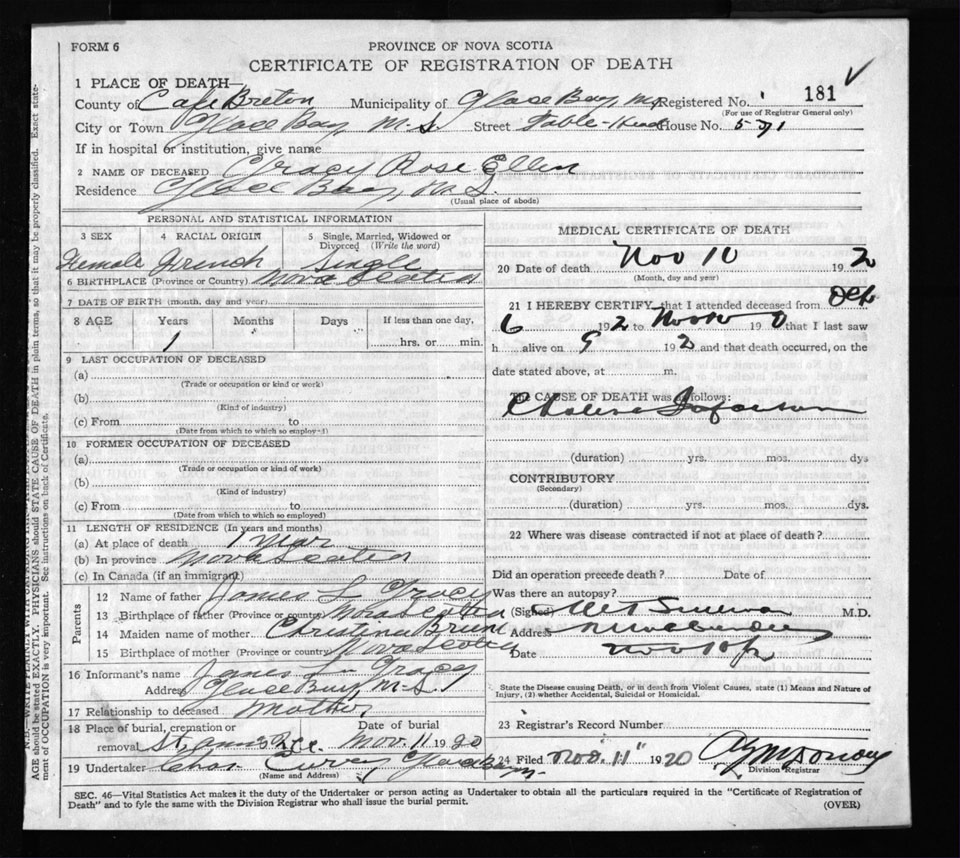 FORM 6
PROVINCE OF NOVA SCOTIA
CERTIFICATE OF REGISTRATION OF DEATH
1 PLACE OF DEATH—
County of Cape Breton Municipality of Glace Bay, Registered No. 181
(For use of Registrar General only)
City or Town Glace Bay, N. S. Street Table-Head House No.
If in hospital or institution, give name
2 NAME OF DECEASED Gracy Rose Ellen
Residence Glace Bay, N. S.
(Usual place of abode)
PERSONAL AND STATISTICAL INFORMATION
3 SEX 4 RACIAL ORIGIN 5 Single, Married, Widowed or Divorced (Write the word)
Female French Single
6 BIRTHPLACE (Province or Country) Nova Scotia
7 DATE OF BIRTH (month, day and year)
8 AGE Years Months Days If less than one day,
1 hrs. or min.
9 LAST OCCUPATION OF DECEASED
(a)
(Trade or occupation or kind or work)
(b)
(Kind of industry)
(c) From to
(Date from which to which so employed)
10 FORMER OCCUPATION OF DECEASED
(a)
(Trade or occupation or kind of work)
(b)
(Kind of industry)
(c) From to
(Date from which to which so employed)
11 LENGTH OF RESIDENCE (In years and months)
(a) At place of death 1 year
(b) In province Nova Scotia
(c) In Canada (if an immigrant)
Parents
12 Name of father James L Gracy
13 Birthplace of father (Province or country) Nova Scotia
14 Maiden name of mother Christena
15 Birthplace of mother (Province or country) Nova Scotia
16 Informant's name James L Gracy
Address Glace Bay, N. S.
17 Relationship to deceased Mother
18 Place of burial, cremation or removal Date of burial
Nov. 11 1920
19 Undertaker Chas. Curry Glace Bay
(Name and Address)
MEDICAL CERTIFICATE OF DEATH
20 Date of death Nov 10 192
(Month, day and year)
21 I HEREBY CERTIFY that I attended deceased from
6 192 to Nov 10 19 that I last saw
h alive on 9 192 and that death occurred, on the
date stated above, at m.
The CAUSE OF DEATH was as follows:
Cholera Infantum
(duration) yrs. mos. dys
CONTRIBUTORY
(Secondary)
(duration) yrs. mos. dys.
22 Where was disease contracted if not at place of death?
Did an operation precede death? Date of
Was there an autopsy?
(Signed) M.D.
Address
Date Nov 10
State the Disease causing Death, or in death from Violent Causes, state (1) Means and Nature of Injury, (2) whether Accidental, Suicidal or Homicidal.
23 Registrar's Record Number
24 Filed Nov. 11" 1920
Division Registrar
SEC. 46—Vital Statistics Act makes it the duty of the Undertaker or person acting as Undertaker to obtain all the particulars required in the "Certificate of Registration of
Death" and to fyle the same with the Division Registrar who shall issue the burial permit.
(OVER)
AGE should be stated EXACTLY. PHYSICIANS should STATE CAUSE OF DEATH in plain terms, so that it may be properly classified. Exact state-
ment of OCCUPATION is very important. See instructions on back of Certificate.